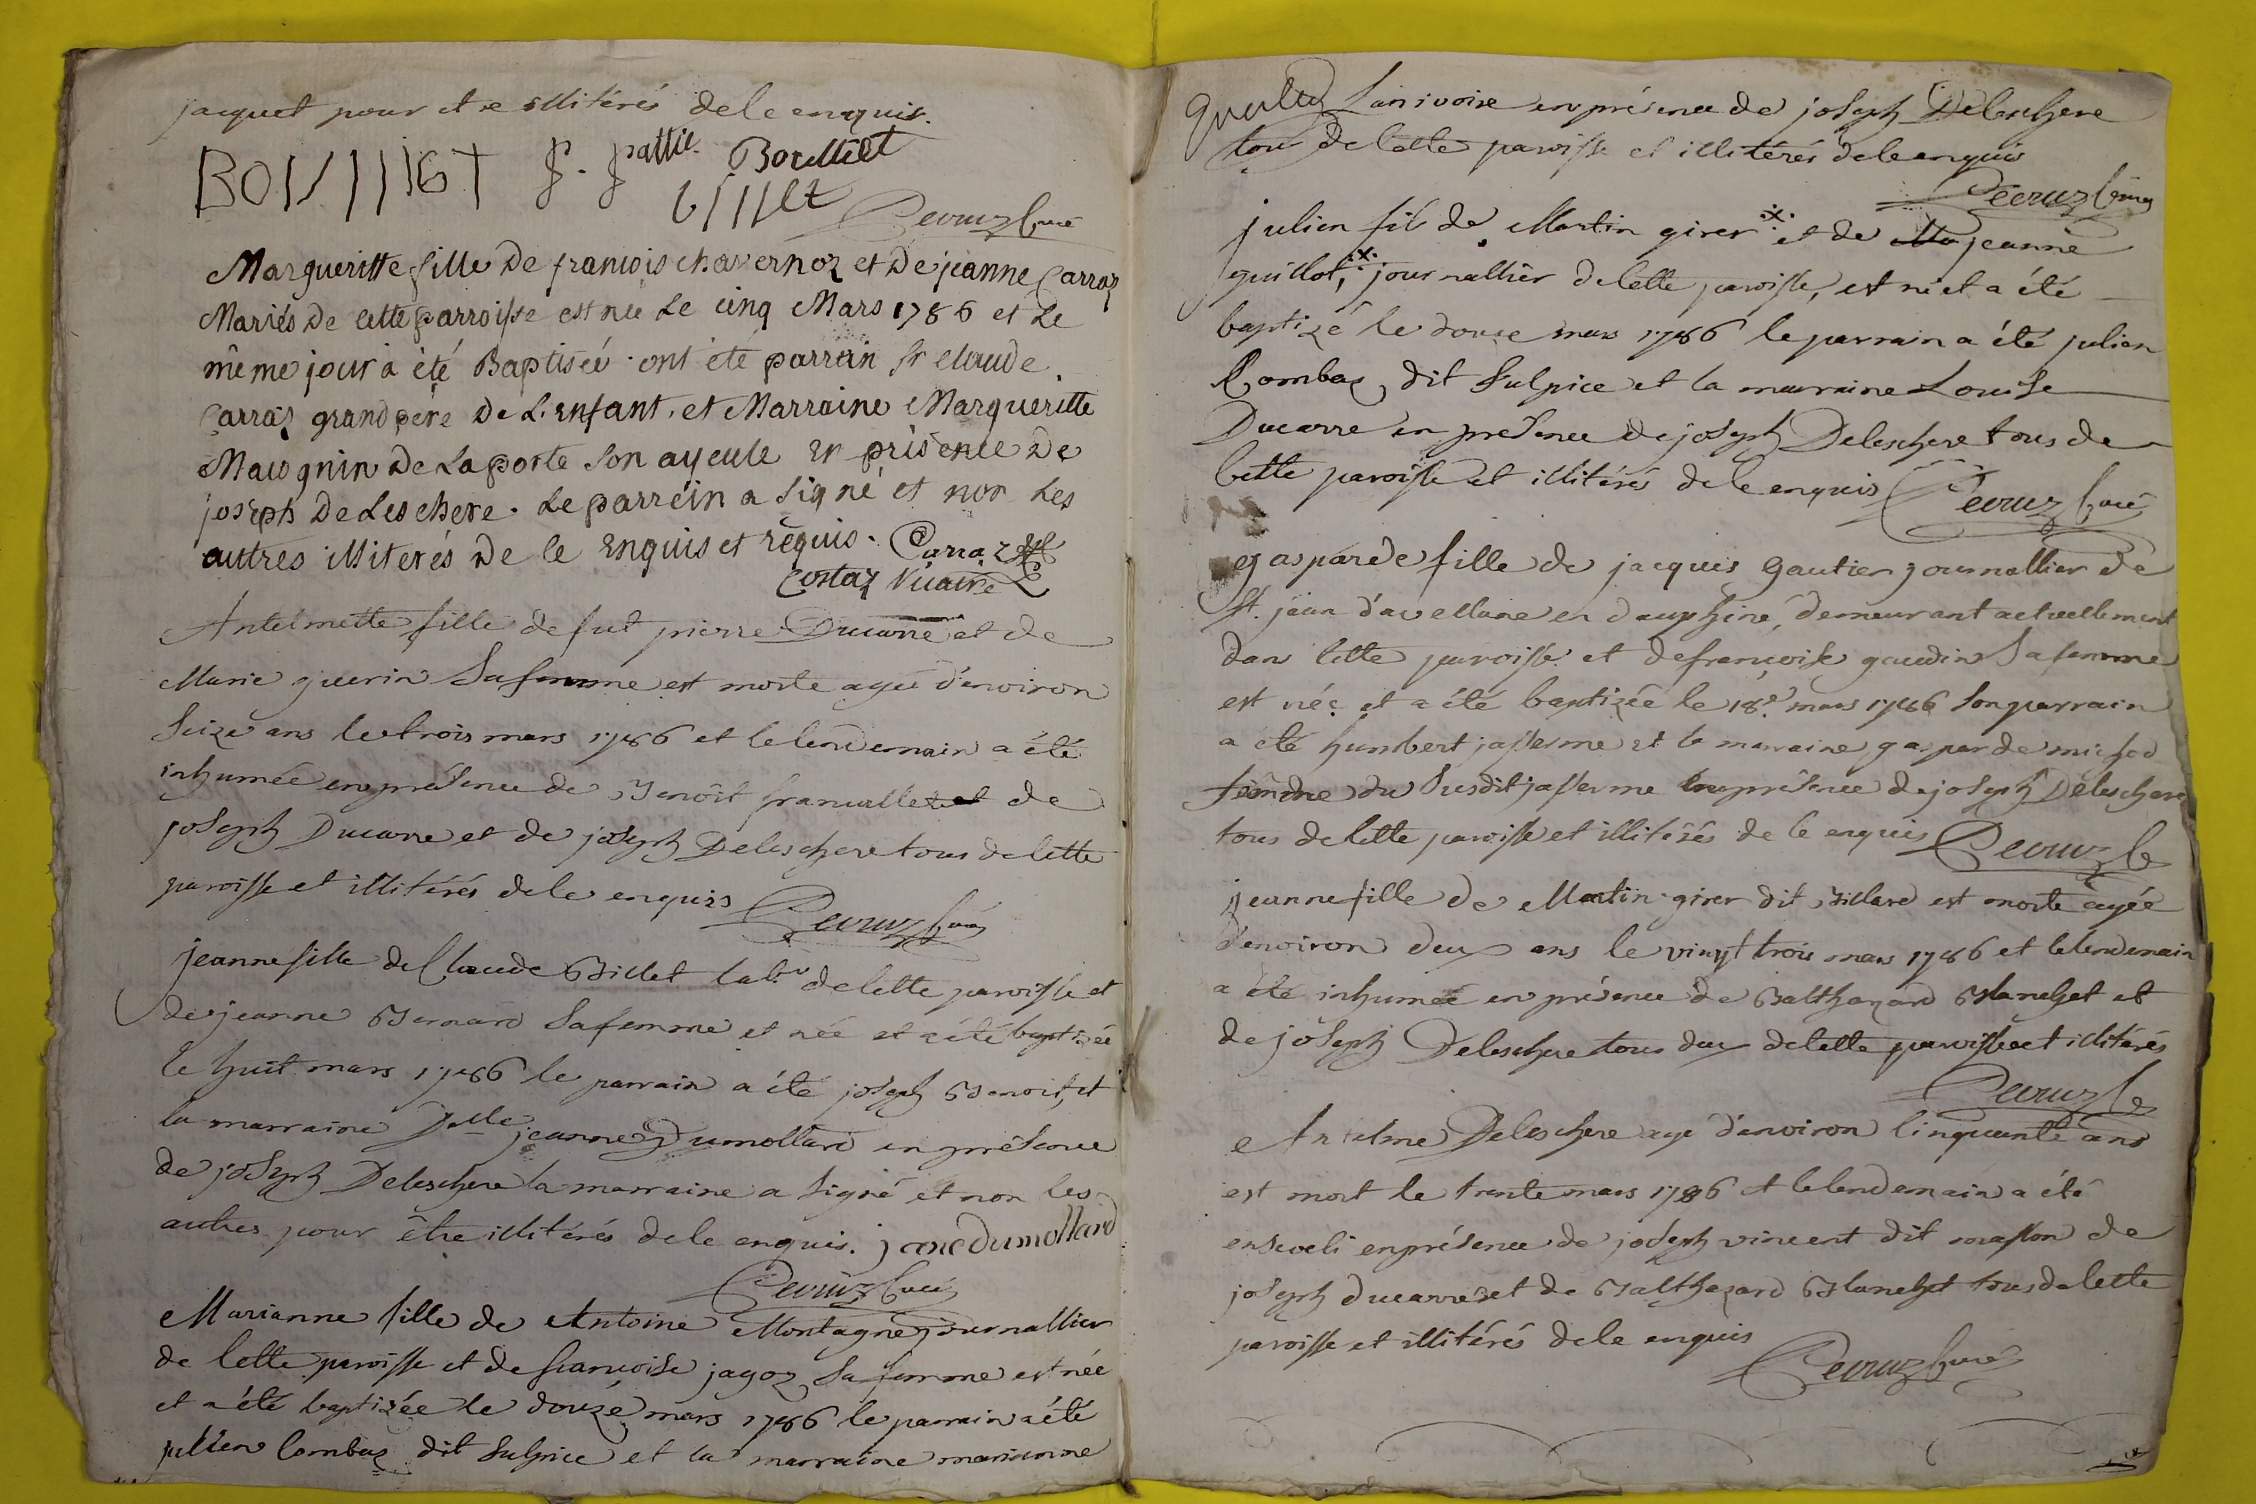 jacquet pour etre illitérés de le enquis.
J. pattie Bouilliet
Decruz Curé
Margueritte fille de francois chavernoz et de jeanne Carraz
Mariés de cette parroisse est née Le cinq Mars 1786 et Le
même jour a été Baptisée. ont été parrain Sr claude
Carraz grand pere de L'enfant, et Marraine Margueritte
De Laporte son ayeule en présence de
joseph De Leschere. Le parrein a signé et non Les
autres illiterés de le enquis et requis. Carraz
Costaz Vicaire
Antelmette fille de fut pierre Ducarre et de
Marie guerin Sa femme est morte agée d'environ
Seize ans le trois mars 1786 et le lendemain a été
inhumée en présence de Benoit francillet et de
joseph Ducarre et de joseph Deleschere tous de cette
paroisse et illitérés de le enquis Decruz Curé
jeanne fille de Claude Billet labr. de cette paroisse et
de jeanne Bernard Sa femme et née et a été baptisée
le huit mars 1786 le parrain a été joseph Benoit, et
la marraine Dlle jeanne Dumollard en présence
de joseph Deleschere la marraine a signé et non les
autres pour être illitérés de le enquis. jane dumollard
Decruz Curé
Marianne fille de Antoine Montagne journallier
de cette paroisse et de francoise jagoz Sa femme est née
et a été baptizée le douze mars 1786 le parrain a été
julien Combaz dit Sulpice et la marraine marianne
Lanivoire en présence de joseph Deleschere
tous de cette paroisse et illitérés de le enquis
Decruz Curé
julien fils de Martin girer .x. et de Ma jeanne
guillot, .x. journallier de cette paroisse, est né et a été
baptizé le douze mars 1786 le parrain a été julien
Combaz dit Sulpice et la marraine Louise
Ducarre en présence de joseph Deleschere tous de
cette paroisse et illitérés de le enquis Decruz Curé
gasparde fille de jacques Gautier journallier de
St. jean d'avellane en dauphiné, demeurant actuellement
dans cette paroisse et de françoise gaudin Sa femme
est née et a été baptizée le 18e. mars 1786 Son parrain
a été humbert jasserme et la marraine gasparde michod
femme du Susdit jasserme en présence de joseph Deleschere
tous de cette paroisse et illitérés de le enquis Decruz C
jeanne fille de Martin girer dit Billard est morte agée
d'environ deux ans le vingt trois mars 1786 et le lendemain
a été inhumée en présence de Balthazard Blanchet et
de joseph Deleschere tous deux de cette paroisse et illitérés
Decruz C
Antelme Deleschere agé d'environ Cinquante ans
est mort le trente mars 1786 et le lendemain a été
enseveli en présence de joseph vincent dit masson de
joseph ducarre et de Balthazard Blanchet tous de cette
paroisse et illitérés de le enquis
Decruz Curé